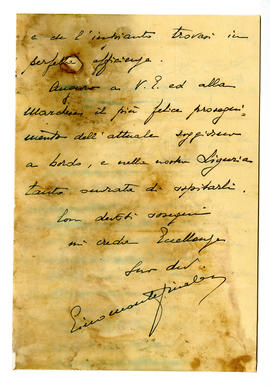 e de l'impianto trovasi in
perfetta efficienza.
Auguro a V. E. ed alla
Marchesa il più felice prosegui-
mento dell'attuale soggiorno
a bordo, e nella nostra Liguria
tanto onorata di ospitarli.
Con devoti ossequi
mi creda Eccellenza
Suo dev.